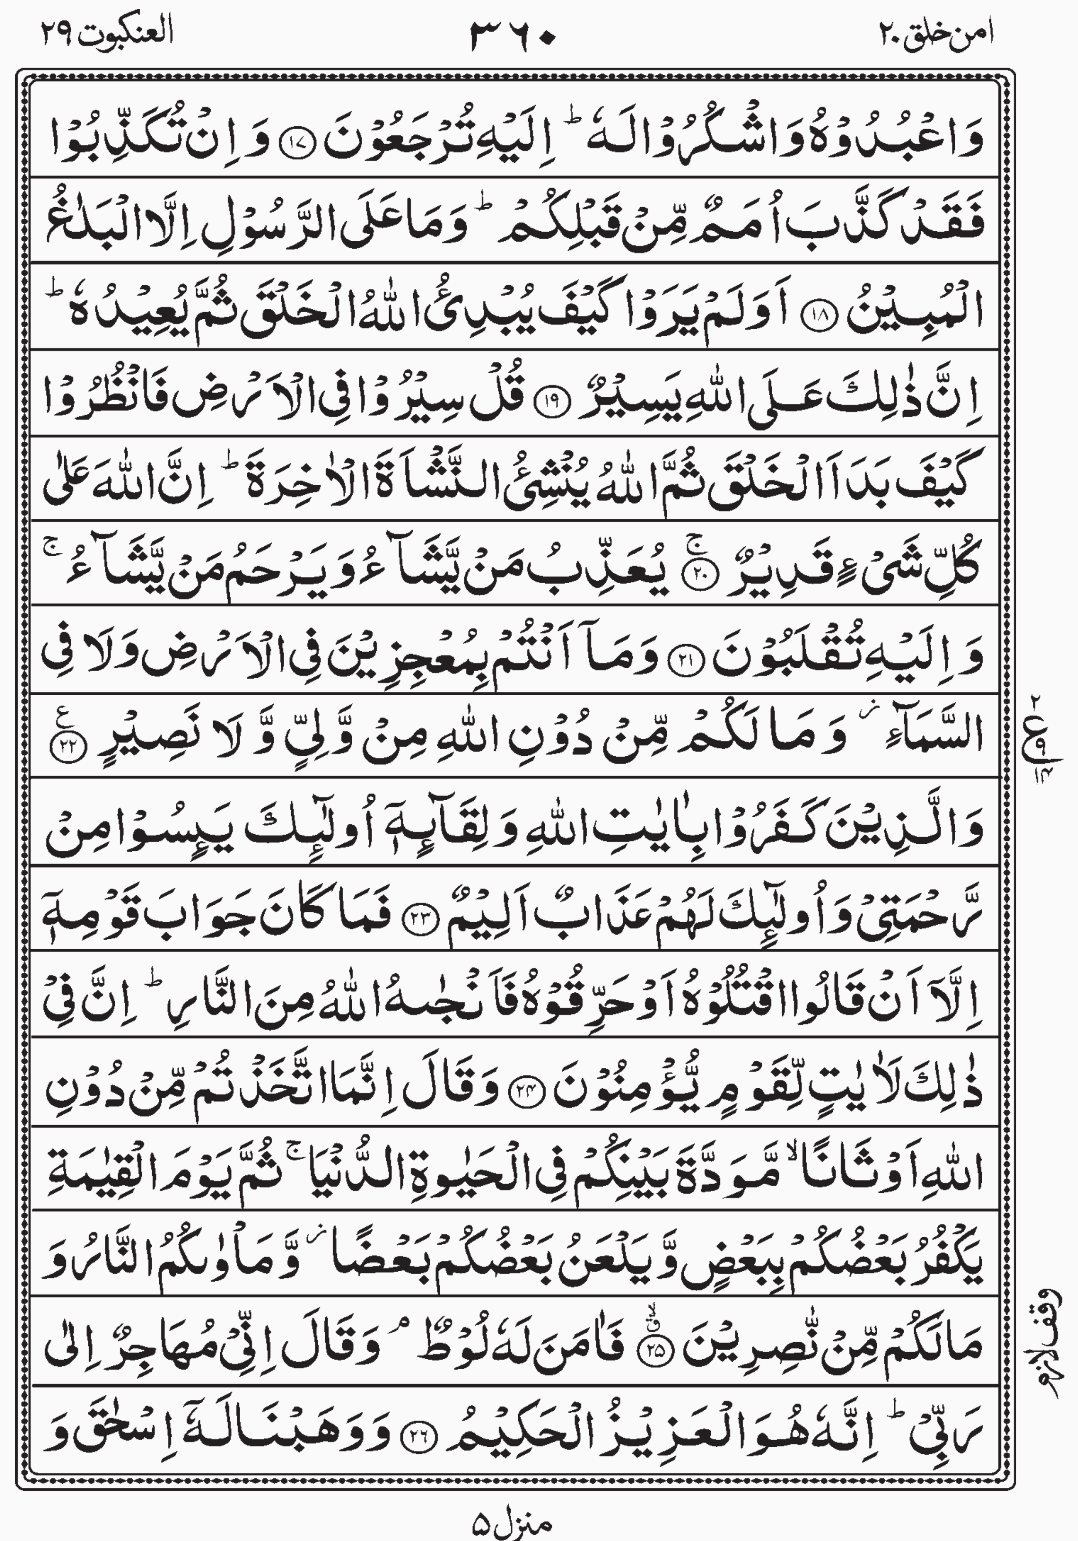 امن خلق ٢٠ ٣٦٠ العنكبوت ٢٩
وَاعْبُدُوْهُ وَاشْكُرُوْا لَهٗ ؕ اِلَيْهِ تُرْجَعُوْنَ ﴿۱۷﴾ وَ اِنْ تُكَذِّبُوْا
فَقَدْ كَذَّبَ اُمَمٌ مِّنْ قَبْلِكُمْ ؕ وَمَا عَلَى الرَّسُوْلِ اِلَّا الْبَلٰغُ
الْمُبِيْنُ ﴿۱۸﴾ اَوَلَمْ يَرَوْا كَيْفَ يُبْدِئُ اللّٰهُ الْخَلْقَ ثُمَّ يُعِيْدُهٗ ؕ
اِنَّ ذٰلِكَ عَلَى اللّٰهِ يَسِيْرٌ ﴿۱۹﴾ قُلْ سِيْرُوْا فِى الْاَرْضِ فَانْظُرُوْا
كَيْفَ بَدَاَ الْخَلْقَ ثُمَّ اللّٰهُ يُنْشِئُ النَّشْاَةَ الْاٰخِرَةَ ؕ اِنَّ اللّٰهَ عَلٰى
كُلِّ شَىْءٍ قَدِيْرٌ ۚ﴿۲۰﴾ يُعَذِّبُ مَنْ يَّشَآءُ وَيَرْحَمُ مَنْ يَّشَآءُ ۚ
وَ اِلَيْهِ تُقْلَبُوْنَ ﴿۲۱﴾ وَمَآ اَنْتُمْ بِمُعْجِزِيْنَ فِى الْاَرْضِ وَلَا فِى
السَّمَآءِ ز وَمَا لَكُمْ مِّنْ دُوْنِ اللّٰهِ مِنْ وَّلِىٍّ وَّلَا نَصِيْرٍ ع ﴿۲۲﴾
وَالَّذِيْنَ كَفَرُوْا بِاٰيٰتِ اللّٰهِ وَلِقَآئِهٖٓ اُولٰٓئِكَ يَئِسُوْا مِنْ
رَّحْمَتِىْ وَاُولٰٓئِكَ لَهُمْ عَذَابٌ اَلِيْمٌ ﴿۲۳﴾ فَمَا كَانَ جَوَابَ قَوْمِهٖٓ
اِلَّآ اَنْ قَالُوا اقْتُلُوْهُ اَوْ حَرِّقُوْهُ فَاَنْجٰىهُ اللّٰهُ مِنَ النَّارِ ؕ اِنَّ فِىْ
ذٰلِكَ لَاٰيٰتٍ لِّقَوْمٍ يُّؤْمِنُوْنَ ﴿۲۴﴾ وَقَالَ اِنَّمَا اتَّخَذْتُمْ مِّنْ دُوْنِ
اللّٰهِ اَوْثَانًا ۙ مَّوَدَّةَ بَيْنِكُمْ فِى الْحَيٰوةِ الدُّنْيَا ۚ ثُمَّ يَوْمَ الْقِيٰمَةِ
يَكْفُرُ بَعْضُكُمْ بِبَعْضٍ وَّيَلْعَنُ بَعْضُكُمْ بَعْضًا ز وَّمَاْوٰىكُمُ النَّارُ وَ
مَا لَكُمْ مِّنْ نّٰصِرِيْنَ ق ۙ﴿۲۵﴾ فَاٰمَنَ لَهٗ لُوْطٌ ۘ وَقَالَ اِنِّىْ مُهَاجِرٌ اِلٰى
رَبِّىْ ؕ اِنَّهٗ هُوَ الْعَزِيْزُ الْحَكِيْمُ ﴿۲۶﴾ وَوَهَبْنَا لَهٗٓ اِسْحٰقَ وَ
۲ ع ۱۴
وقف لازم
منزل ۵